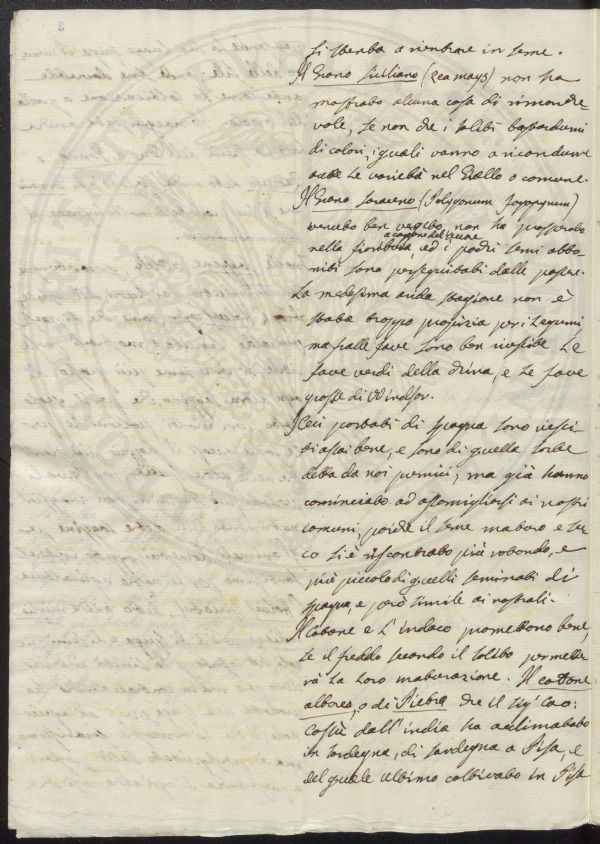 si stenta a rientrare in seme.
Il Grano Siciliano (Zea mays) non ha
mostrato alcuna cosa di rimarche
vole, se non che i soliti bastardumi
di colori, i quali vanno a ricondurre
tutte le varietà nel Giallo o comune.
Il Grano saraceno (Polygonum fagopyrum)
venuto ben vegeto, non ha prosperato
a cagione del
nella fioritura, ed i pochi semi abbo
niti sono perseguitati dalle passe-
La medesima arida stagione non è
stata troppo propizia per i Legumi,
ma fralle fave sono ben riuscite Le
fave verdi della China, e Le fave
grosse di Windsor.
I Ceci portati di Spagna sono riusci
ti assai bene, e sono di quella sorte
detta da noi pernici; ma già hanno
cominciato ad assomigliarsi ai nostri
comuni, poiche il seme maturo e sec
co si è riscontrato più rotondo, e
più piccolo di quelli seminati di
Spagna, e però simile ai nostrali.
Il Cotone e L'indaco promettono bene,
se il freddo secondo il solito permette
rà La Loro maturazione. Il cotone
arboreo, o di Pietra che il Sigr Cao:
dall'india ha aclimatato
in Sardegna, di Sardegna a Pisa, e
del quale ultimo coltivato in Pisa